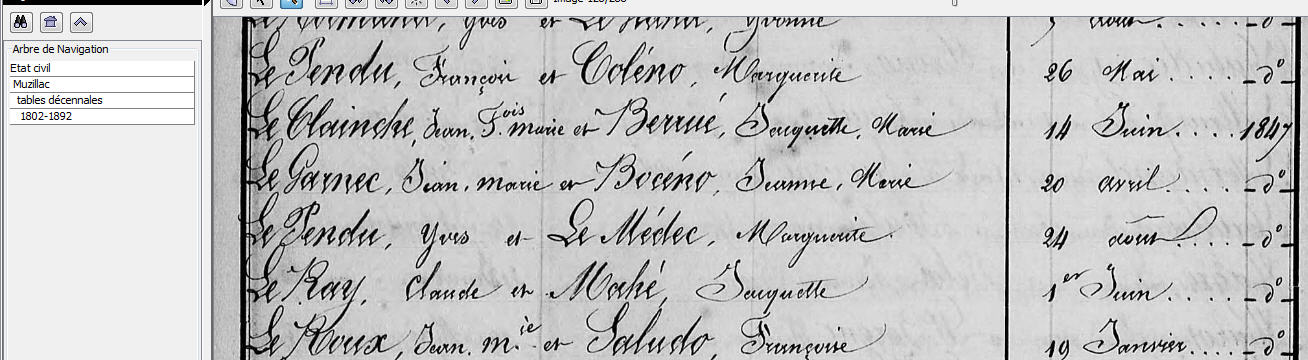 Arbre de Navigation
Etat civil
Muzillac
tables décennales
1802-1892
Yves et Yvonne
Le Pendu, François et Coléno, Marguerite 26 Mai .... -d°-
Le Clainche, Jean, F.ois marie et Berrué, Jacquette, Marie 14 Juin .... 1847
Le Garnec, Jean, marie et Bocéno, Jeanne, Marie 20 avril .... -d°-
Le Pendu, Yves et Le Médec, Marguerite 24 août .... -d°-
Le Ray, Claude et Mahé, Jacquette 1er Juin .... -d°-
Le Roux, Jean, m.ie et Saludo, Françoise 19 Janvier .. -d°-